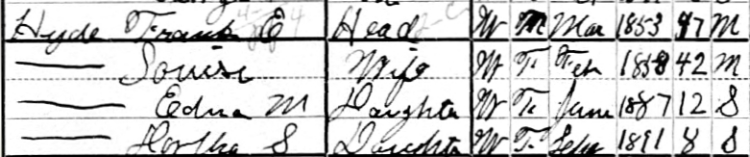 Hyde Frank E Head W M Mar 1853 47 M
Louise Wife W F Feb 1858 42 M
Edna M Daughter W F June 1887 12 S
Hortha S Daughter W F Sept 1891 8 S